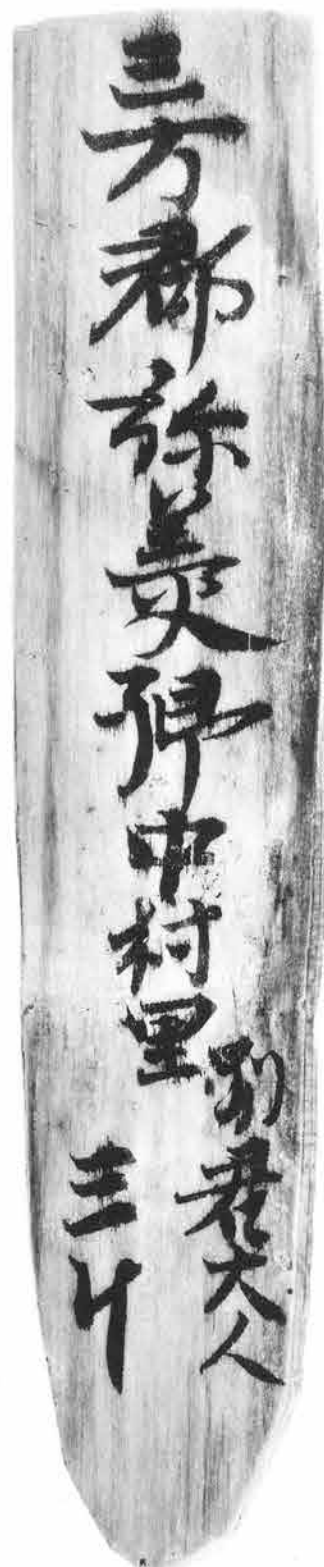 三方郡弥美郷中村里
別君大人
三斗